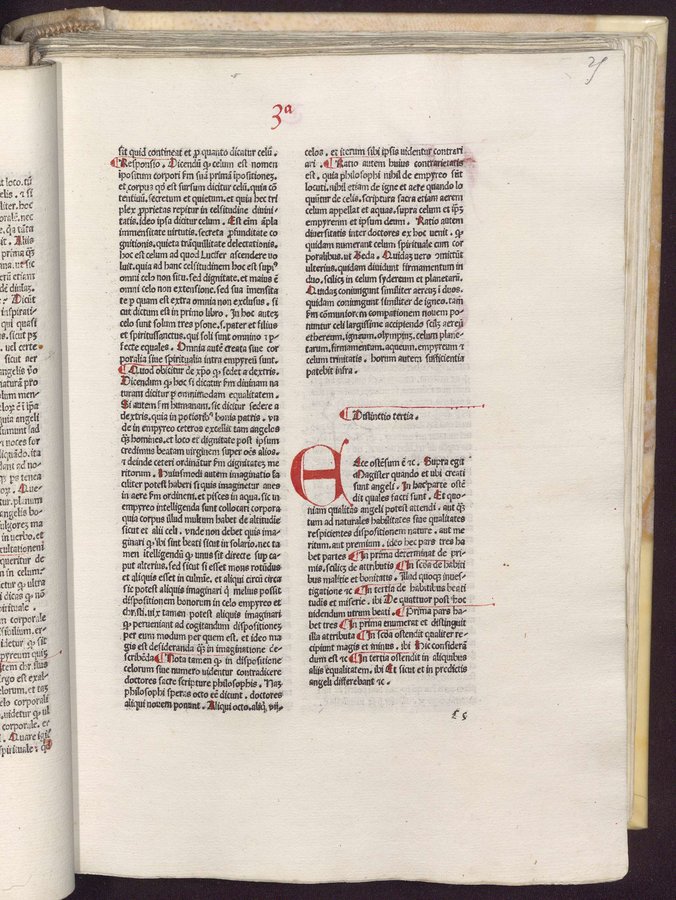 25
3ª
sit quid contineat et ꝑ quanto dicatur celū.
Responsio. Dicendū ꝙ celum est nomen
ipositum corpori ſm suā primā ipositionēʒ.
et corpus qđ est sursum dicitur celū. quia cō
tentiuū. secretum et quietum. et quia hec tri
plex ꝓprietas repitur in celsitudine diuini
tatis. ideo ipsa dicitur celum. Est eim āpla
immensitate virtutis. secreta ꝓfunditate co
gnitionis. quieta trāquillitate delectationis.
hoc est celum ad quod Lucifer ascendere vo
luit. quia ad hanc celsitudinem hoc est supꝰ
omni celo non situ. sed dignitate. et maius ē
omni celo non extensione. sed sua immensita
te ꝑ quam est extra omnia non exclusus. si
cut dictum est in primo libro. In hoc auteʒ
celo sunt solum tres ꝑsone. s. pater et filius
et spiritussanctus. qui soli sunt omnino ꝑ
fecte equales. Omnia autē creata siue cor
poralia siue spiritualia intra empyreū sunt.
Quod obicitur de xp̄o ꝙ sedet a dextris.
Dicendum ꝙ hoc si dicatur ſm diuinam na
turam dicitur ꝓ omnimodam equalitatem.
Si autem ſm humanam. sic dicitur sedere a
dextris. quia in potiorib⁹ bonis patris. vn
de in empyreo ceteros excellit tam angelos
ꝙ̄ homines. et loco et dignitate post ipsum
credimus beatam virginem super oēs alios.
⁊ deinde ceteri ordinātur ſm dignitateʒ me
ritorum. Huiusmodi autem imaginatio fa
ciliter potest haberi si quis imaginetur aues
in aere ſm ordinem. et pisces in aqua. sic in
empyreo intelligenda sunt collocari corpora
quia corpus illud multum habet de altitudie
sicut et alii celi. vnde non debet quis ima
ginari ꝙ ibi sint beati sicut in solario. nec ta
men itelligendū ꝙ unus sit directe sup ca
put alterius. sed sicut si esset mons rotūdus
et aliquis esset in culmīe. et aliqui circū circa
sic potest aliquis imaginari ꝙ melius possit
dispositionem bonorum in celo empyreo et
christi. uix tamen potest aliquis imaginari
ꝙ perueniant ad cogitandum dispositioneʒ
per eum modum per quem est. et ideo ma
gis est desideranda ꝙ̄ in imaginatione de
scribēda Nota tamen ꝙ in dispositione
celorum siue numero uidentur contradicere
doctores sacre scripture philosophis. Naʒ
philosophi speras octo eē dicunt. doctores
aliqui nouem ponunt. Aliqui octo. aliq̄ vii.
celos. et iterum sibi ipsis uidentur contrari
ari. Ratio autem huius contrarietatis
est. quia philosophi nihil de empyreo sūt
locuti. nihil etiam de igne et aere quando lo
quūtur de celis. scriptura sacra etiam aerem
celum appellat et aquas. supra celum et ip̄ʒ
empyreum et ipsum deum. Ratio autem
diuersitatis inter doctores ex hoc uenit. ꝙ
quidam numerant celum spirituale cum cor
poralibus. ut Beda. Quidaʒ vero omittūt
ulterius. quidam diuidunt firmamentum in
duo. scilicʒ in celum sydereum et planetarū.
Quidaʒ coniungunt similiter aereuʒ in duos.
quidam coniungunt similiter de igneo. tam̄
ſm cōmuniorem compationem nouem po
nuntur celi largissime accipiendo scilʒ aereū
ethereum. igneum. olympiuʒ. celum plane⸗
tarum. firmamentum. aqueum. empyreum ⁊
celum trinitatis. horum autem sufficientia
patebit infra.
Distinctio tertia.
Ecce ostēsum ē ⁊c. Supra egit
Magister quando et ubi creati
sunt angeli. In hac parte ostē
dit quales facti sunt. Et quo⸗
niam qualitas angeli potest attendi. aut q̄ʒ
tum ad naturales habilitates siue qualitates
respicientes dispositionem nature. aut me
ritum. aut premium. ideo hec pars tres ha
bet partes In prima determinat de pri⸗
mis. scilicʒ de attributis In scd̄a de habiti
bus malitie et bonitatis. Illud quoqʒ inues⸗
tigatione ⁊c In tertia de habitibus beati
tudis et miserie. ibi De quattuor post hoc
uidendum utrum beati. Prima pars ha⸗
bet tres In prima enumerat et distinguit
illa attributa In scd̄a ostendit qualiter re⸗
cipiunt magis et minus. ibi Hic considerā
dum est ⁊c In tertia ostendit in aliquibus
aliis equalitatem. ibi Et sicut et in predictis
angeli differebant ⁊c.